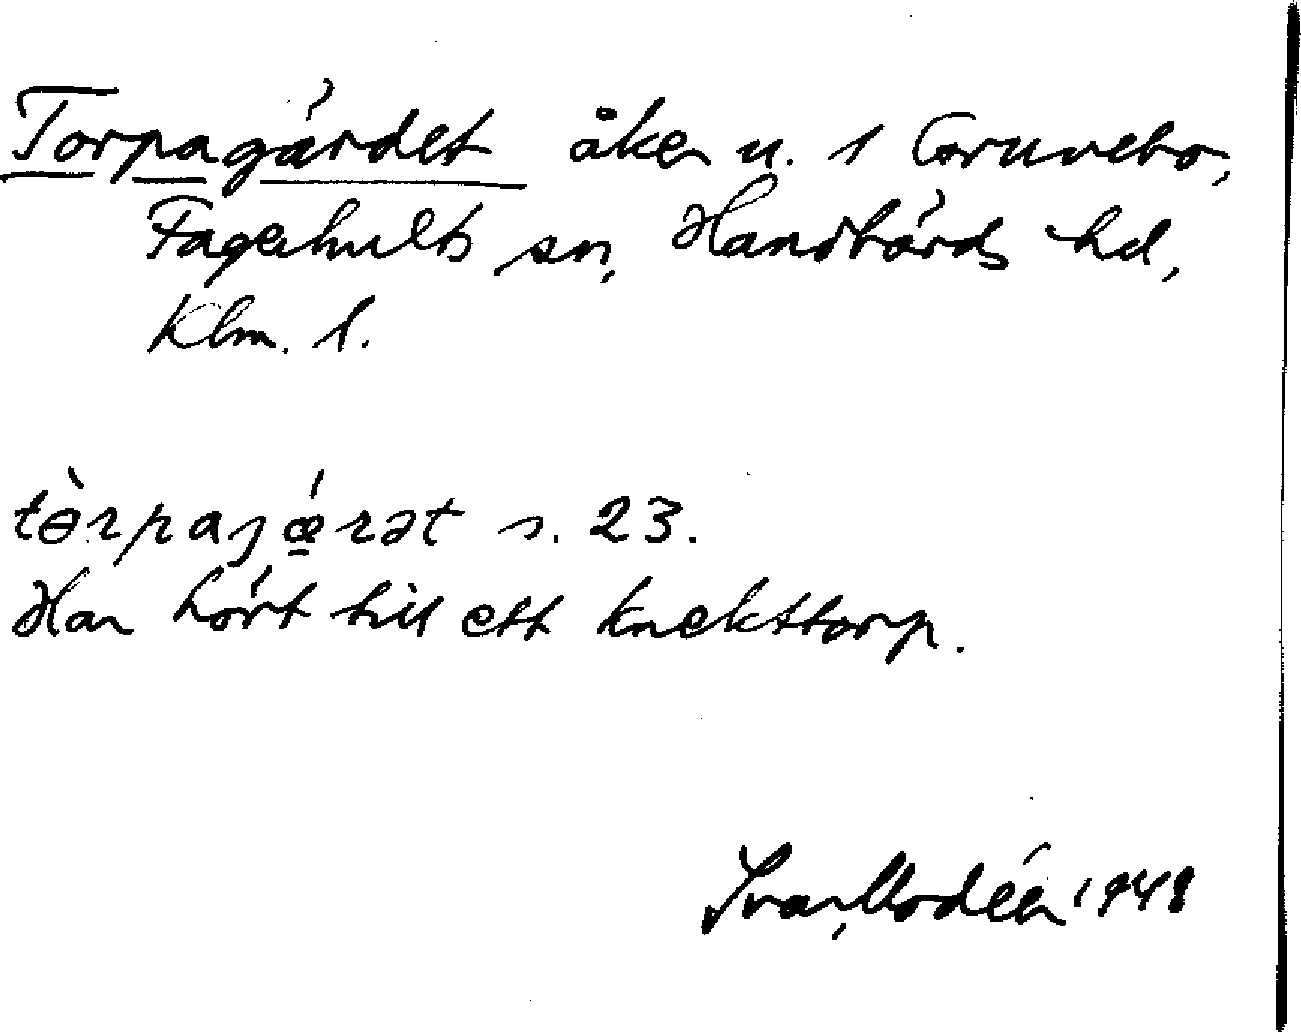 Torpagärdet åker u. 1 Gruvebo,
Fagerhults sn, Handbörds hd,
Klm. l.
tɵ̀rpajǽ̱rət s. 23.
Har hört till ett knekttorp.
Ivar Modéer 1948